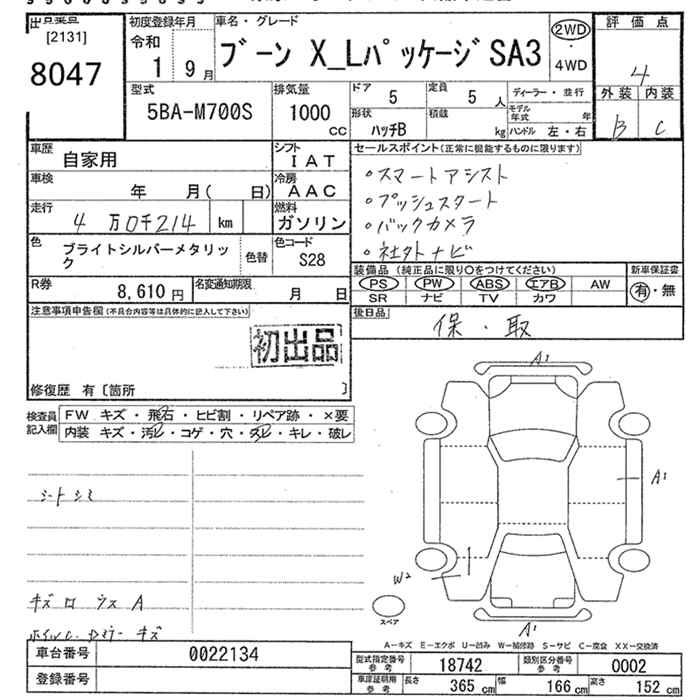 [2131]
8047
初度登録年月
令和
1 9月
車名・グレード
ブーン X_Lパッケージ SA3
2WD
・
4WD
評価点
4
外装 内装
B C
型式
5BA-M700S
排気量
1000
cc
ドア 5
定員 5 人
形状 ハッチB
積載 kg
ディーラー・並行
モデル年式 年
ハンドル 左・右
車歴 自家用
シフト IAT
車検 年 月( 日)
冷房 AAC
走行 4万0千214 km
燃料 ガソリン
色 ブライトシルバーメタリック
色替
色コード S28
R券 8,610円
名変通知期限 月 日
セールスポイント(正常に機能するものに限ります)
・スマートアシスト
・プッシュスタート
・バックカメラ
・社外ナビ
装備品 (純正品に限り○をつけてください)
新車保証書
PS PW ABS エアB AW
SR ナビ TV カワ
有・無
後日品
保・取
注意事項申告欄(不具合内容等は具体的に記入して下さい)
初出品
修復歴 有〔箇所 〕
検査員記入欄
FW キズ・飛石・ヒビ割・リペア跡・×要
内装 キズ・汚レ・コゲ・穴・スレ・キレ・破レ
シートシミ
キズ ロ ウス A
A1
A1
W2
A1
スペア
A-キズ E-エクボ U-凹み W-補修跡 S-サビ C-腐食 XX-交換済
車台番号 0022134
登録番号
型式指定番号 参考 18742
類別区分番号 参考 0002
車庫証明用 参考 長さ 365cm 幅 166cm 高さ 152cm